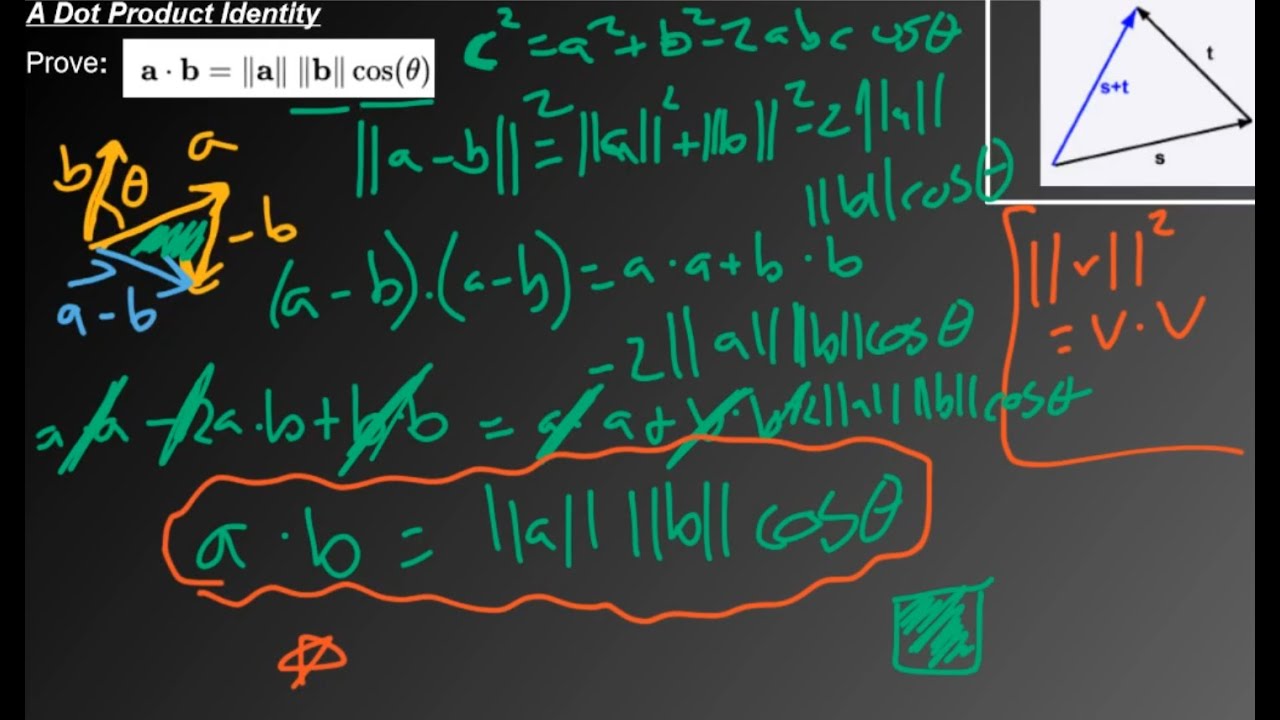 A Dot Product Identity
Prove: a · b = ||a|| ||b|| cos(θ)
c² = a² + b² - 2abc cosθ
||a - b||² = ||a||² + ||b||² - 2||a||
||b|| cosθ
(a - b) · (a - b) = a · a + b · b
- 2||a|| ||b|| cosθ
a · a - 2a · b + b · b = a · a + b · b - 2||a|| ||b|| cosθ
a · b = ||a|| ||b|| cosθ
b
θ
a
-b
a - b
t
s+t
s
||v||²
= v · v